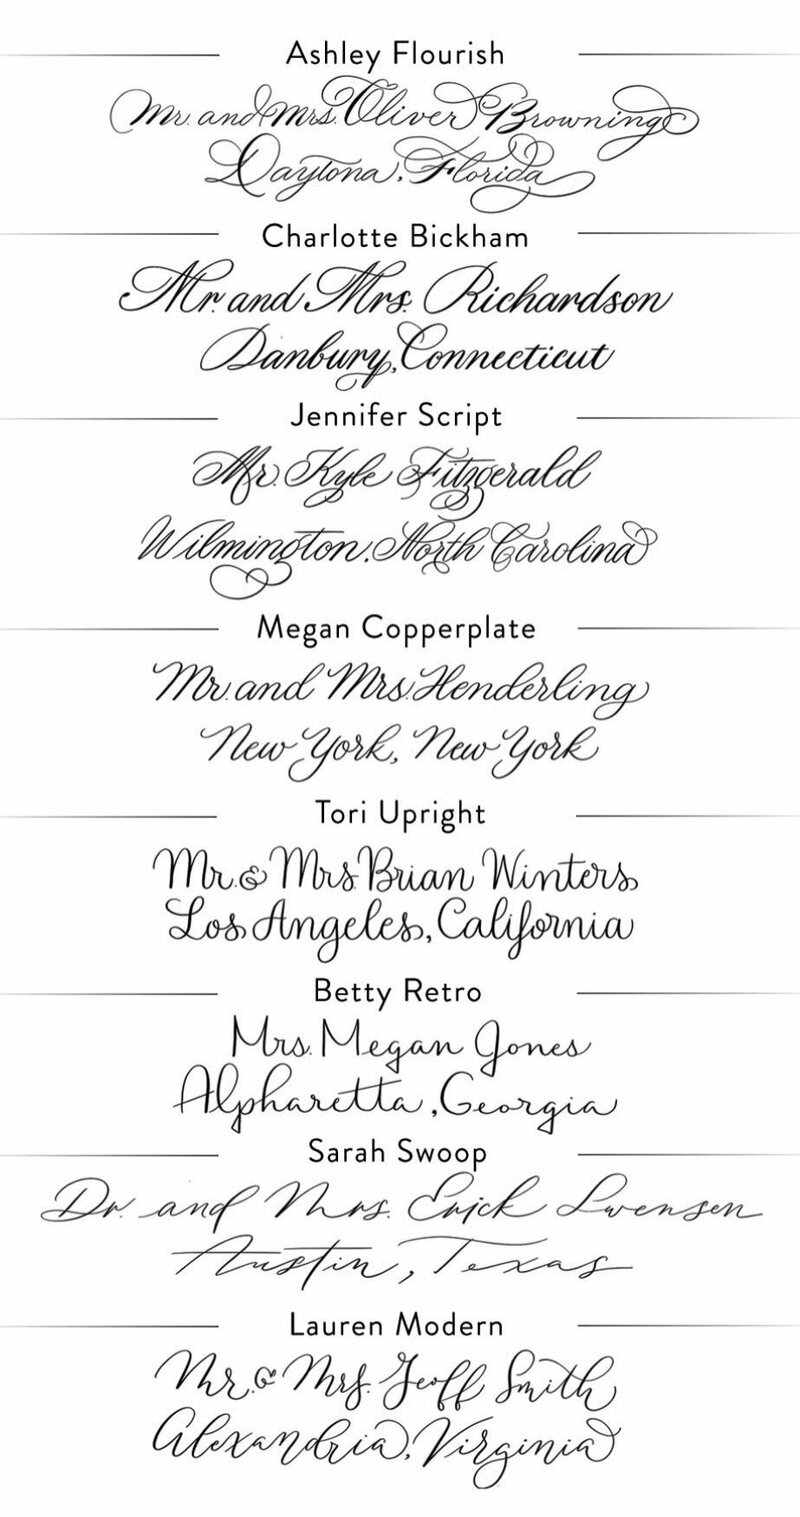 Ashley Flourish
Mr. and Mrs. Oliver Browning
Daytona, Florida
Charlotte Bickham
Mr. and Mrs. Richardson
Danbury, Connecticut
Jennifer Script
Mr. Kyle Fitzgerald
Wilmington, North Carolina
Megan Copperplate
Mr. and Mrs. Henderling
New York, New York
Tori Upright
Mr. & Mrs. Brian Winters
Los Angeles, California
Betty Retro
Mrs. Megan Jones
Alpharetta, Georgia
Sarah Swoop
Dr. and Mrs. Erick Swensen
Austin, Texas
Lauren Modern
Mr. & Mrs. Geoff Smith
Alexandria, Virginia